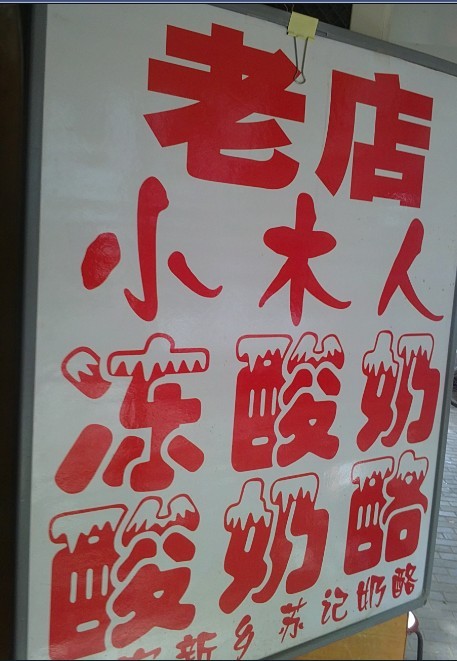 老店
小木人
冻酸奶
酸奶酪
新乡苏记奶酪